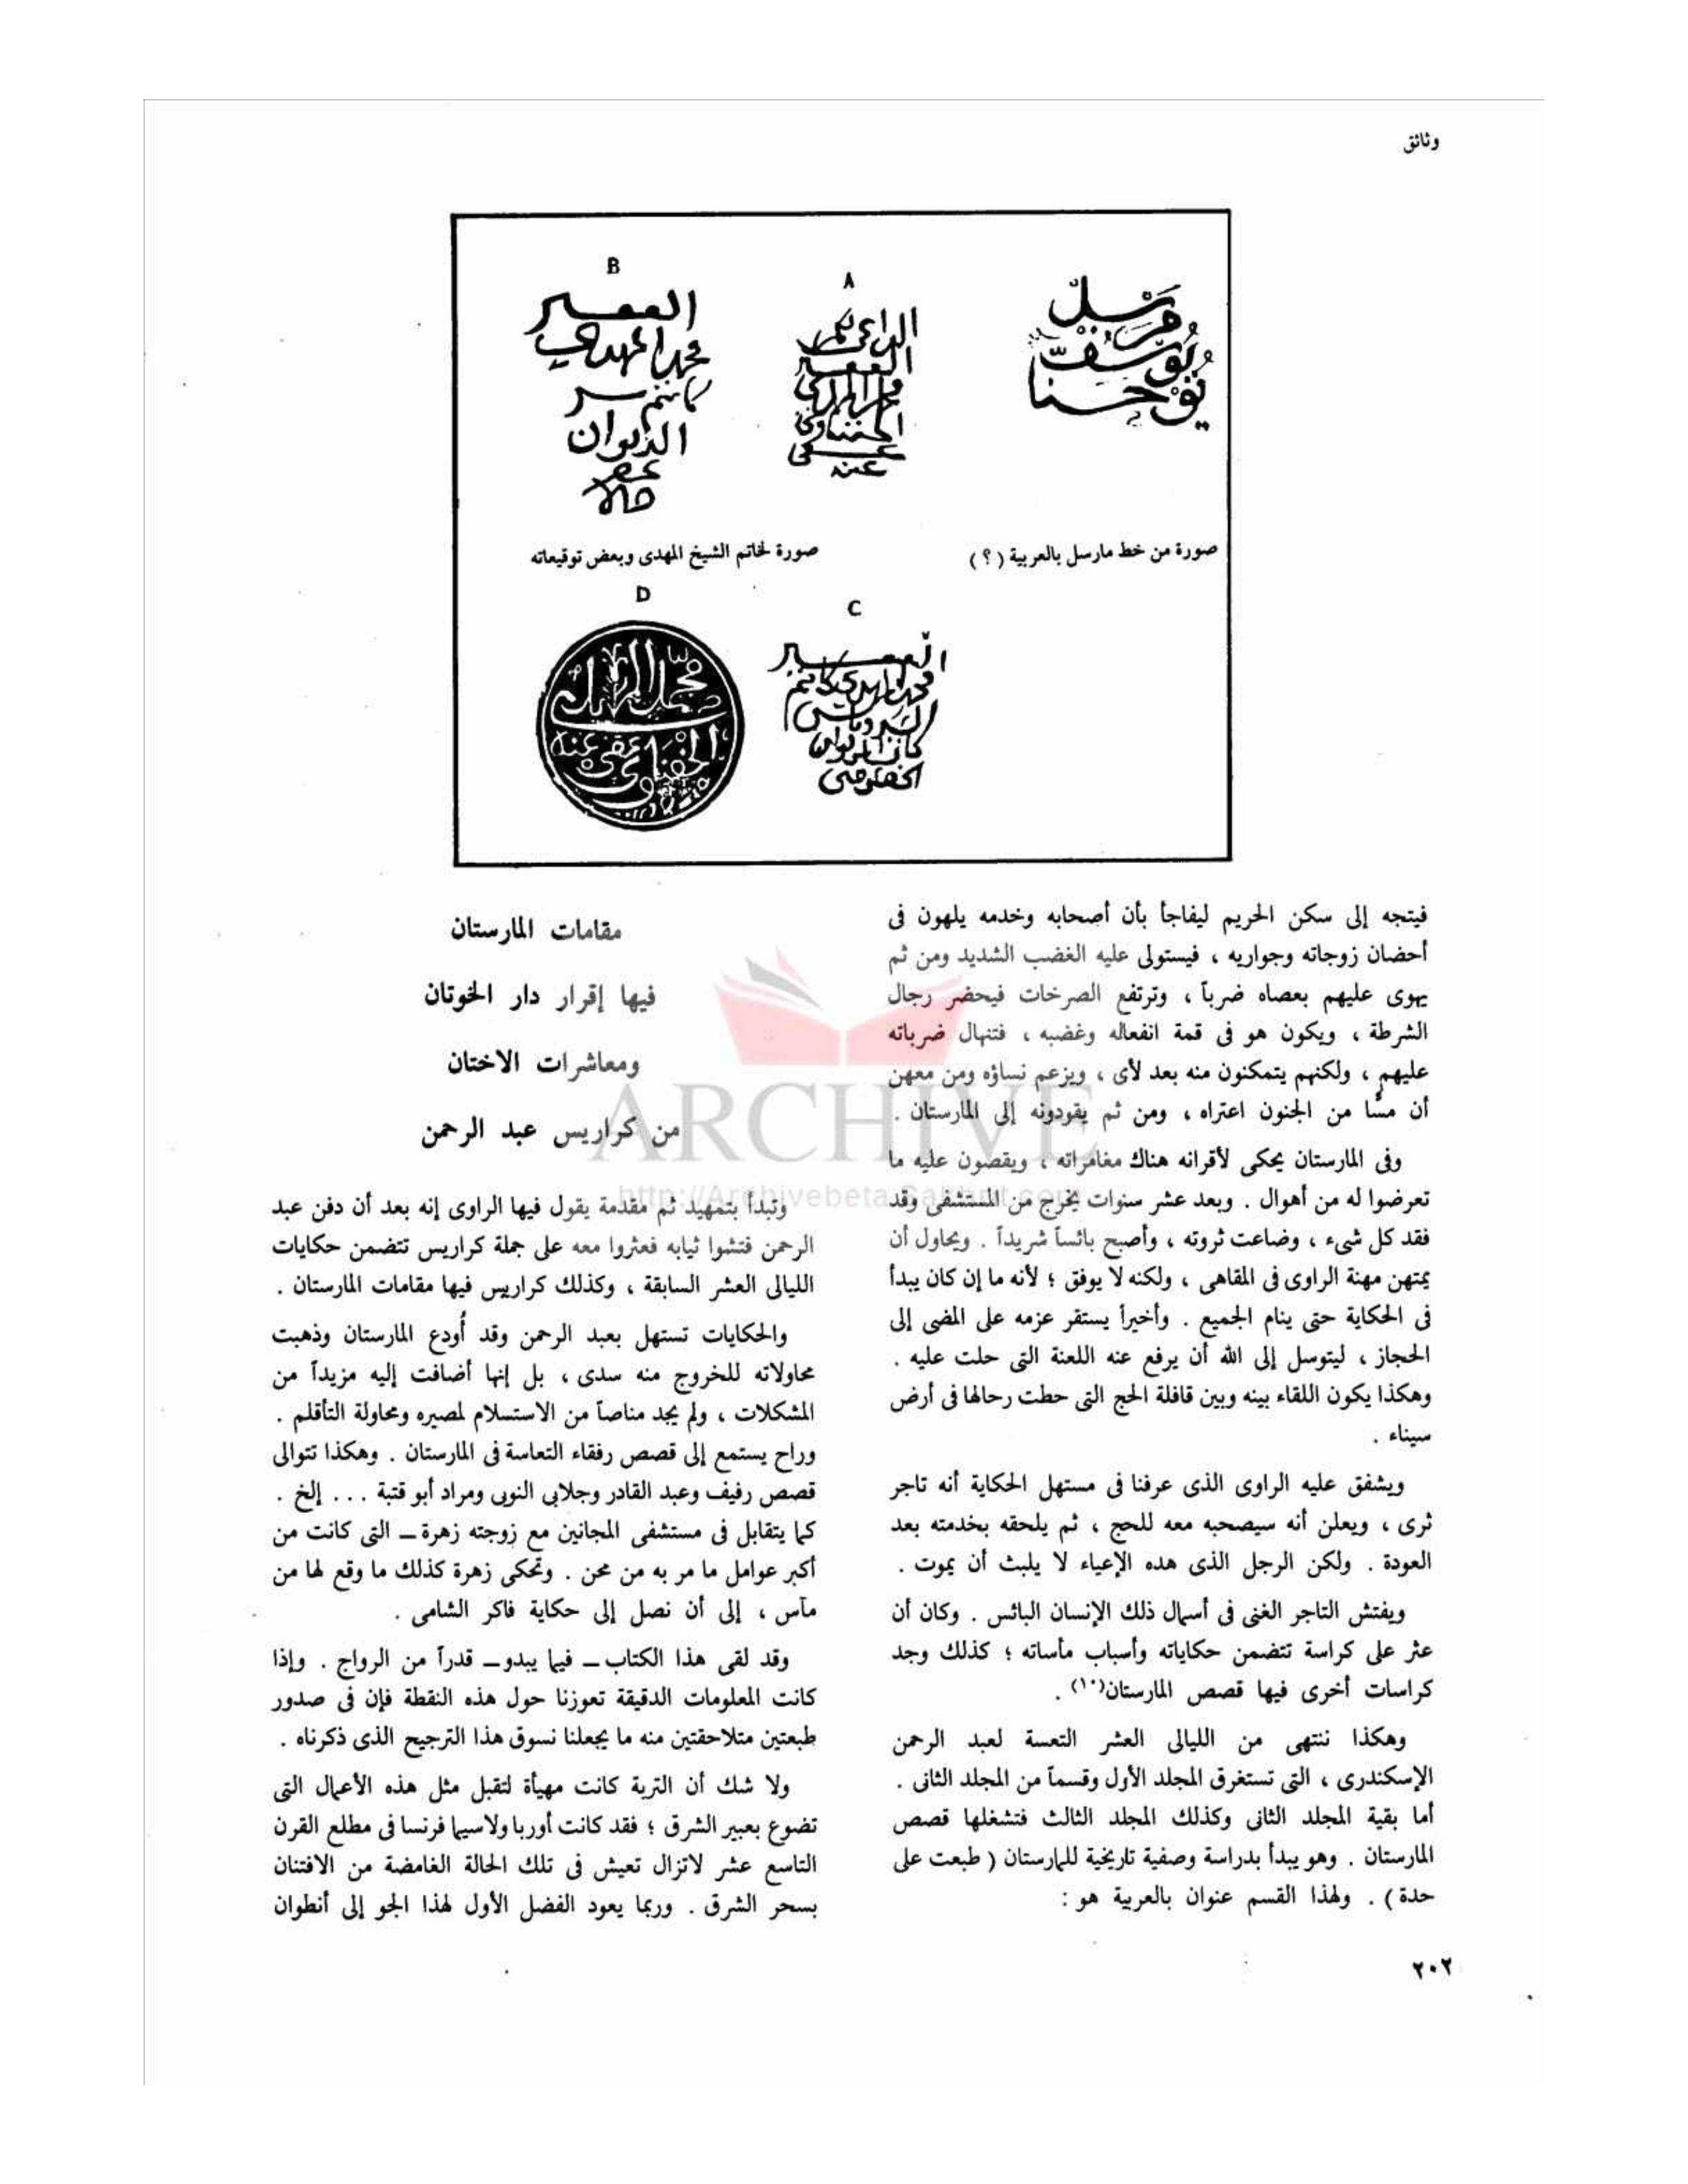 وثائق
B
A
الفقير
محمد المهدي
كاتم سر
الديوان
بمصر
حالا
الداعي لكم
الفقير
محمد المهدي
الحفناوي
عفي
عنه
مرسل
يوسف
يوحنا
صورة من خط مارسل بالعربية ( ؟ )
صورة لخاتم الشيخ المهدى وبعض توقيعاته
D
C
الفقير
محمد المهدي كاتم
السر
الديوان
الخصوصي
محمد المهدي
الحفناوي عفي عنه
فيتجه إلى سكن الحريم ليفاجأ بأن أصحابه وخدمه يلهون فى
أحضان زوجاته وجواريه ، فيستولى عليه الغضب الشديد ومن ثم
يهوى عليهم بعصاه ضرباً ، وترتفع الصرخات فيحضر رجال
الشرطة ، ويكون هو فى قمة انفعاله وغضبه ، فتنهال ضرباته
عليهم ، ولكنهم يتمكنون منه بعد لأى ، ويزعم نساؤه ومن معهن
أن مسًّا من الجنون اعتراه ، ومن ثم يقودونه إلى المارستان .
وفى المارستان يحكى لأقرانه هناك مغامراته ، ويقصون عليه ما
تعرضوا له من أهوال . وبعد عشر سنوات يخرج من المستشفى وقد
فقد كل شىء ، وضاعت ثروته ، وأصبح بائساً شريداً . ويحاول أن
يمتهن مهنة الراوى فى المقاهى ، ولكنه لا يوفق ؛ لأنه ما إن كان يبدأ
فى الحكاية حتى ينام الجميع . وأخيراً يستقر عزمه على المضى إلى
الحجاز ، ليتوسل إلى الله أن يرفع عنه اللعنة التى حلت عليه .
وهكذا يكون اللقاء بينه وبين قافلة الحج التى حطت رحالها فى أرض
سيناء .
ويشفق عليه الراوى الذى عرفنا فى مستهل الحكاية أنه تاجر
ثرى ، ويعلن أنه سيصحبه معه للحج ، ثم يلحقه بخدمته بعد
العودة . ولكن الرجل الذى هده الإعياء لا يلبث أن يموت .
ويفتش التاجر الغنى فى أسمال ذلك الإنسان البائس . وكان أن
عثر على كراسة تتضمن حكاياته وأسباب مأساته ؛ كذلك وجد
كراسات أخرى فيها قصص المارستان(١٠) .
وهكذا ننتهى من الليالى العشر التعسة لعبد الرحمن
الإسكندرى ، التى تستغرق المجلد الأول وقسماً من المجلد الثانى .
أما بقية المجلد الثانى وكذلك المجلد الثالث فتشغلها قصص
المارستان . وهو يبدأ بدراسة وصفية تاريخية للمارستان ( طبعت على
حدة ) . ولهذا القسم عنوان بالعربية هو :
مقامات المارستان
فيها إقرار دار الخوتان
ومعاشرات الاختان
من كراريس عبد الرحمن
وتبدأ بتمهيد ثم مقدمة يقول فيها الراوى إنه بعد أن دفن عبد
الرحمن فتشوا ثيابه فعثروا معه على جملة كراريس تتضمن حكايات
الليالى العشر السابقة ، وكذلك كراريس فيها مقامات المارستان .
والحكايات تستهل بعبد الرحمن وقد أُودع المارستان وذهبت
محاولاته للخروج منه سدى ، بل إنها أضافت إليه مزيداً من
المشكلات ، ولم يجد مناصاً من الاستسلام لمصيره ومحاولة التأقلم .
وراح يستمع إلى قصص رفقاء التعاسة فى المارستان . وهكذا تتوالى
قصص رفيف وعبد القادر وجلابى النوبى ومراد أبو قتبة ... إلخ .
كما يتقابل فى مستشفى المجانين مع زوجته زهرة ــ التى كانت من
أكبر عوامل ما مر به من محن . وتحكى زهرة كذلك ما وقع لها من
مآس ، إلى أن نصل إلى حكاية فاكر الشامى .
وقد لقى هذا الكتاب ــ فيما يبدو ــ قدراً من الرواج . وإذا
كانت المعلومات الدقيقة تعوزنا حول هذه النقطة فإن فى صدور
طبعتين متلاحقتين منه ما يجعلنا نسوق هذا الترجيح الذى ذكرناه .
ولا شك أن التربة كانت مهيأة لتقبل مثل هذه الأعمال التى
تضوع بعبير الشرق ؛ فقد كانت أوربا ولاسيما فرنسا فى مطلع القرن
التاسع عشر لاتزال تعيش فى تلك الحالة الغامضة من الافتنان
بسحر الشرق . وربما يعود الفضل الأول لهذا الجو إلى أنطوان
ARCHIVE
http://Archivebeta.Sakhrit.com
٢٠٢